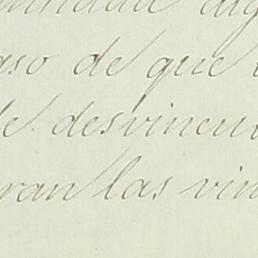 aso de que
de desvincul
ran las vin